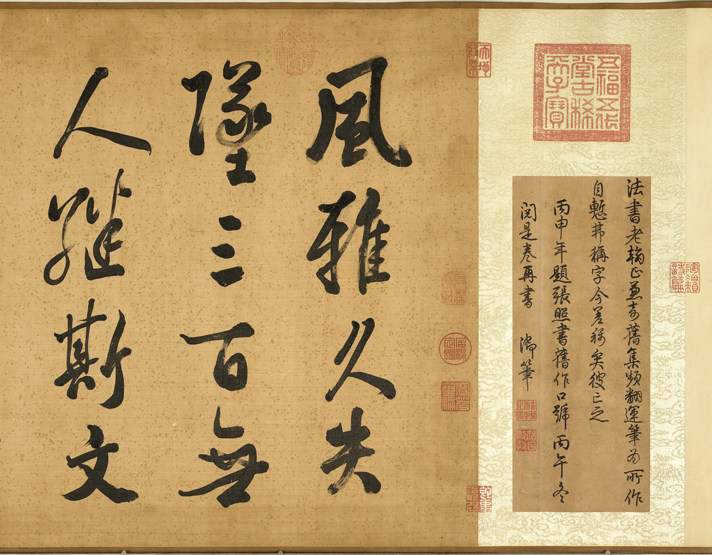 五福五代
堂古稀
天子寶
法書老正兼奇舊集頻翻運筆為所作
自慙非稱字今差稱矣彼亡之
丙申年題張照書舊作口號丙午冬
閱是卷再書 御筆
風雅久失
墜三百無
人繼斯文